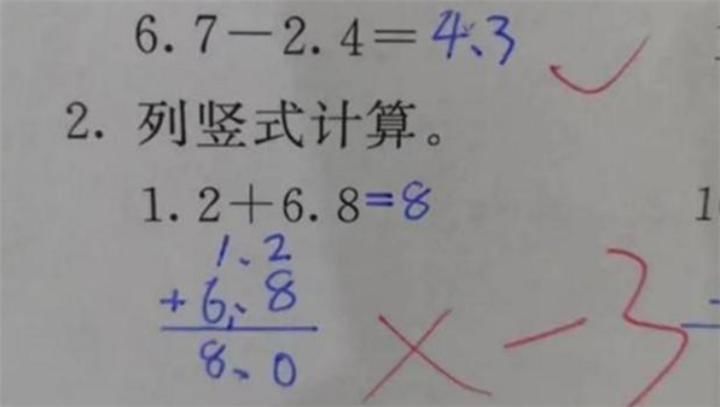 6.7－2.4＝4.3
2. 列竖式计算。
1.2＋6.8=8
1.2
+6.8
8.0
×－3